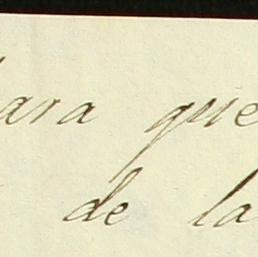 para que
de la